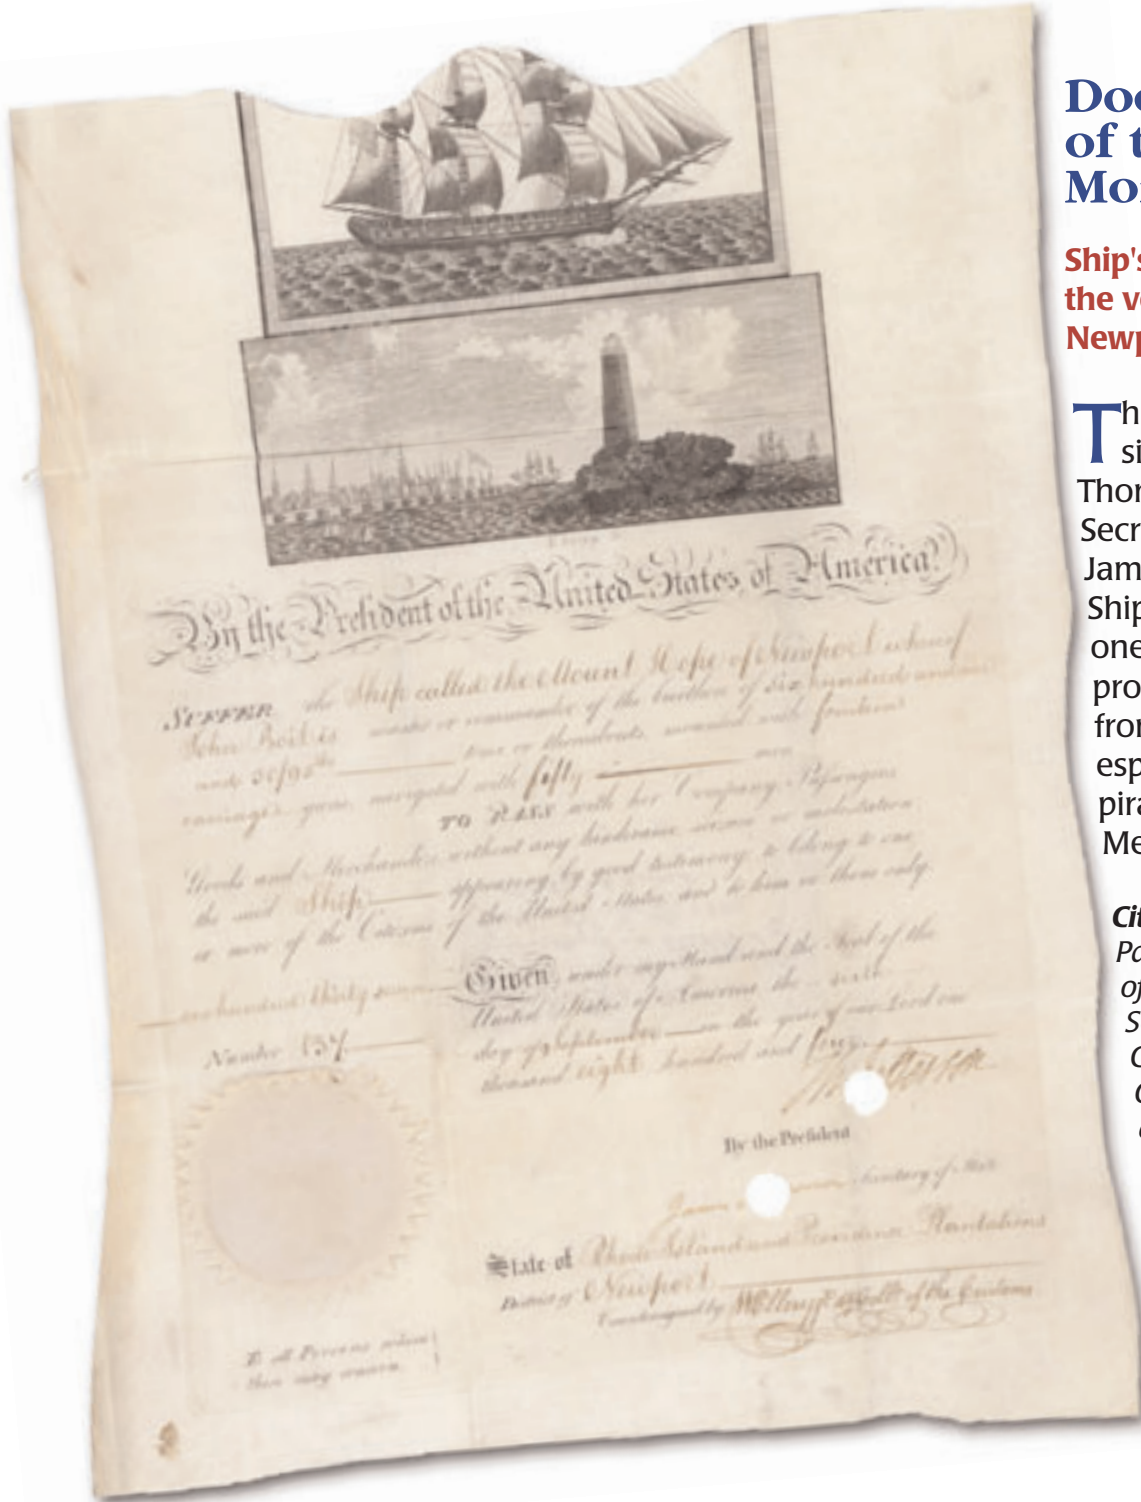 By the President of the United States of America.
SUFFER the Ship called the Mount Hope of Newport whereof
John master or commander of the burthen of Six hundred and
and 30/95ths tons or thereabouts, mounted with fourteen
carriage guns, navigated with fifty men
TO PASS with her Company, Passengers
Goods and Merchandize without any hinderance seizure or molestation:
the said Ship appearing by good testimony to belong to one
or more of the Citizens of the United States, and to him or them only.
one hundred thirty seven
Given under my Hand and the Seal of the
United States of America the sixth
day of September in the year of our Lord one
thousand eight hundred and four
Number 137
By the President
James Secretary of State
State of Rhode Island and Providence Plantations
District of Newport
Countersigned by Collr of the Customs
To all Persons whom
these may concern.
Doc
of t
Mo
Ship's
the v
Newp
Th
si
Thor
Secr
Jam
Ship
one
pro
from
esp
pira
Me
Cit
Pa
of
S